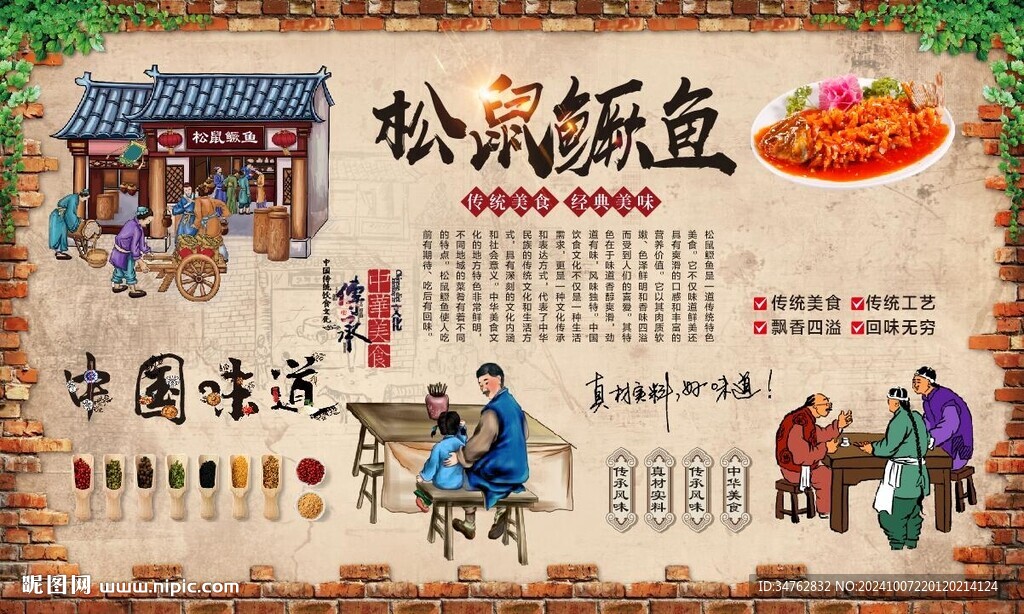 松鼠鳜鱼
松鼠鳜鱼
传统美食 经典美味
松鼠鳜鱼是一道传统特色
美食。它不仅味道鲜美还
具有爽滑的口感和丰富的
营养价值。它以其肉质软
嫩、色泽鲜明和香味四溢
而受到人们的喜爱。其特
色在于味道香醇爽滑，劲
道有味，风味独特。中国
饮食文化不仅是一种生活
需求，更是一种文化传承
和表达方式，代表了中华
民族的传统文化和生活方
式，具有深刻的文化内涵
和社会意义。中华美食文
化的地方特色非常鲜明，
不同地域的菜肴有着不同
的特点。松鼠鳜鱼使人吃
前有期待、吃后有回味。
中国传统饮食文化
传承
中華美食
文化
传统美食
传统工艺
飘香四溢
回味无穷
中国味道
真材实料,好味道！
传承风味
真材实料
传承风味
中华美食
昵图网 www.nipic.com
ID:34762832 NO:20241007220120214124